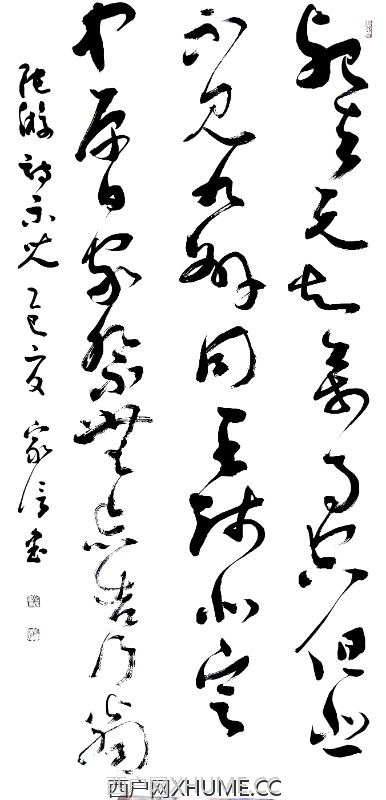 死去元知萬事空但悲
不見九州同王師北定
中原日家祭無忘告乃翁
陸游詩示兒乙巳夏家信書
西户网XHUME.CC